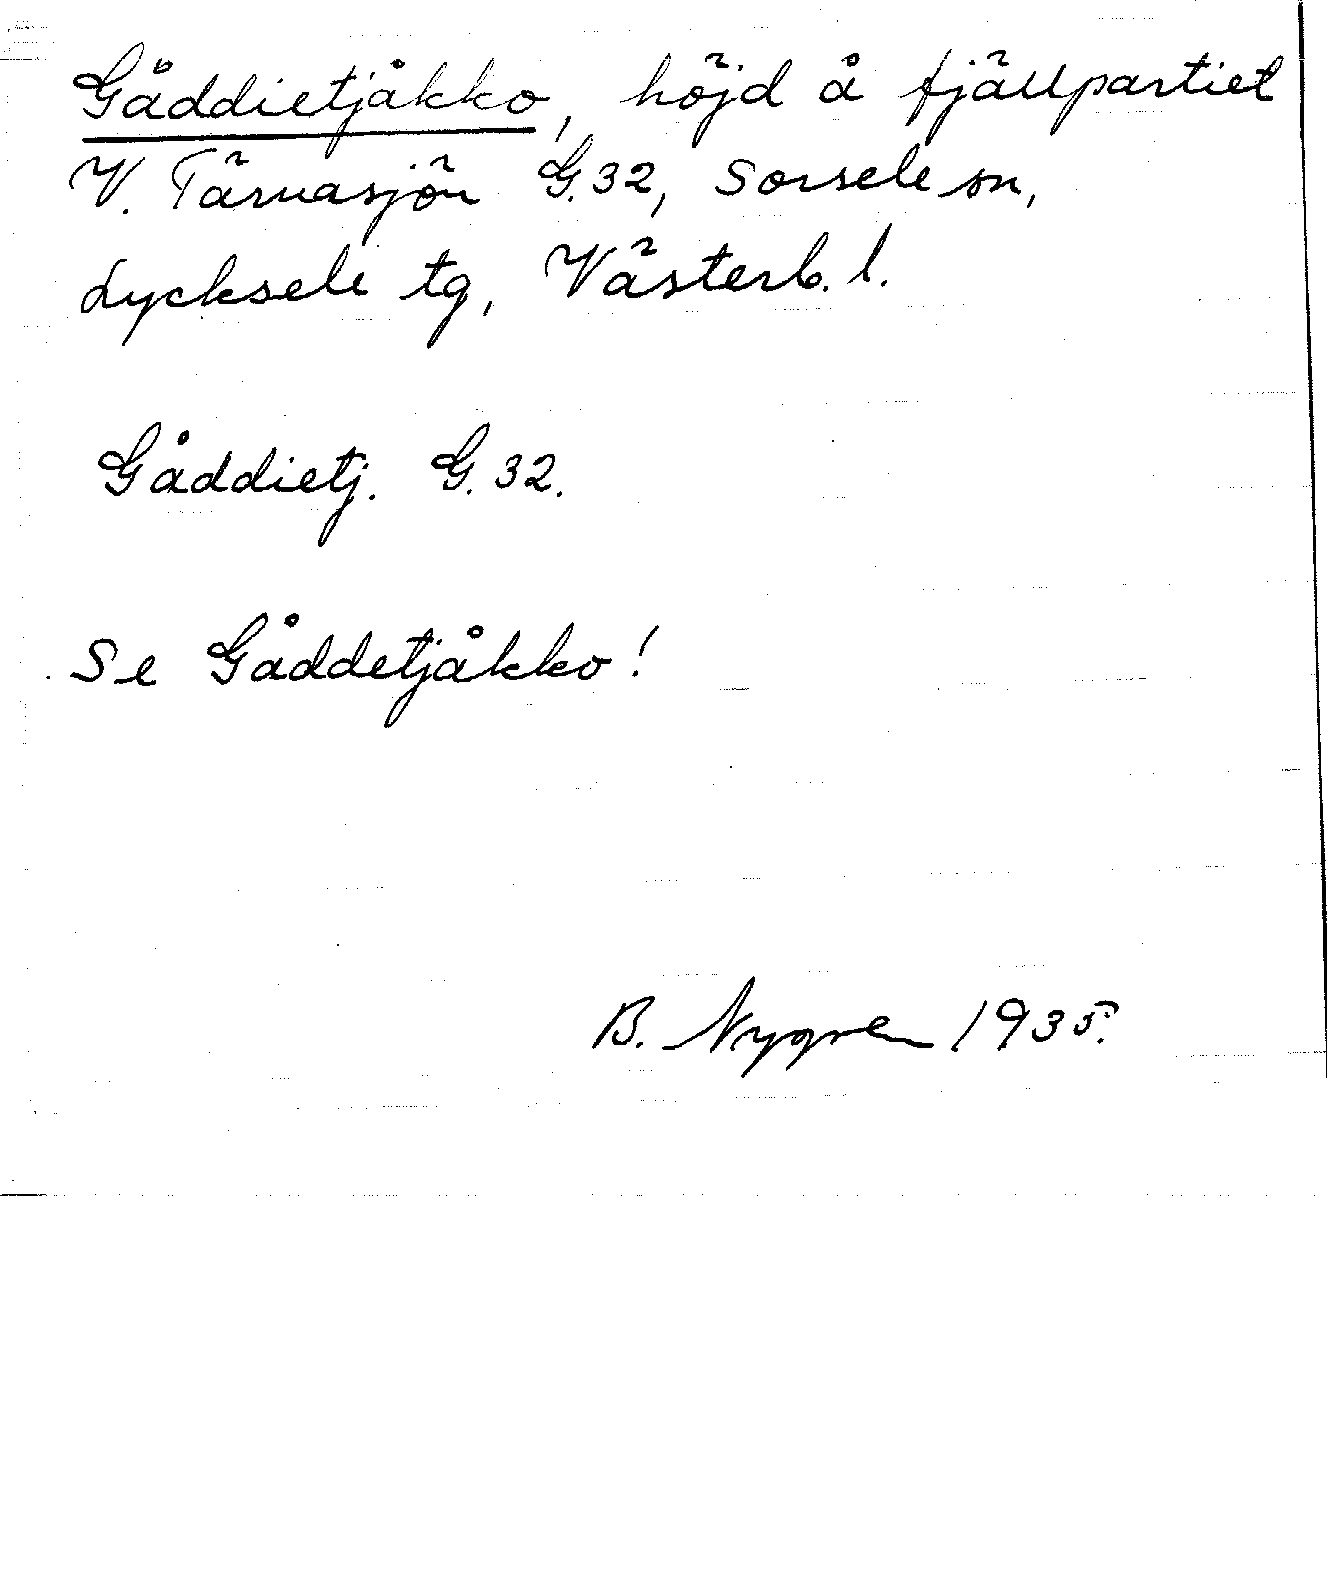 Gåddietjåkko, höjd å fjällpartiet
V. Tärnasjön G.32, Sorsele sn,
Lycksele tg, Västerb. l.
Gåddietj. G. 32.
Se Gåddetjåkko!
B. Nygren 1935.